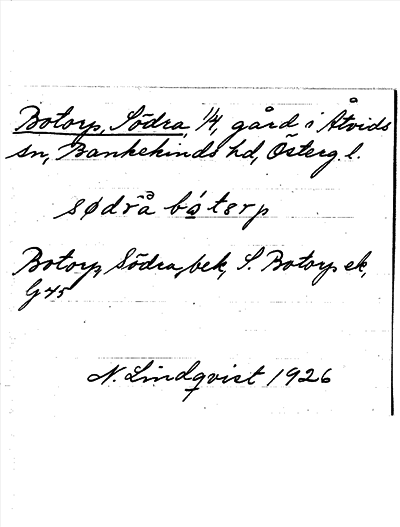 Botorp, Södra, 1/4, gård i Åtvids
sn, Bankekinds hd, Österg. l.
södrå bótɛrp
Botorp, Södra, bek, S. Botorp ek,
G 45
N. Lindqvist 1926